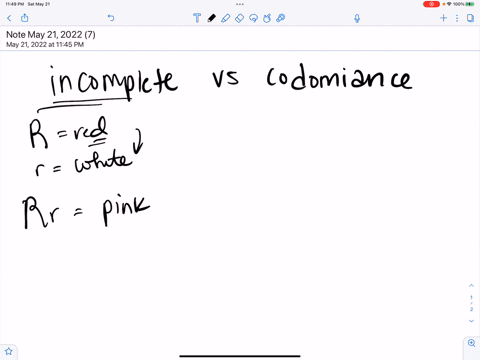 11:49 PM Sat May 21
100%
Note May 21, 2022 (7)
May 21, 2022 at 11:45 PM
incomplete vs codomiance
R = red
r = white
Rr = pink
1
/
2